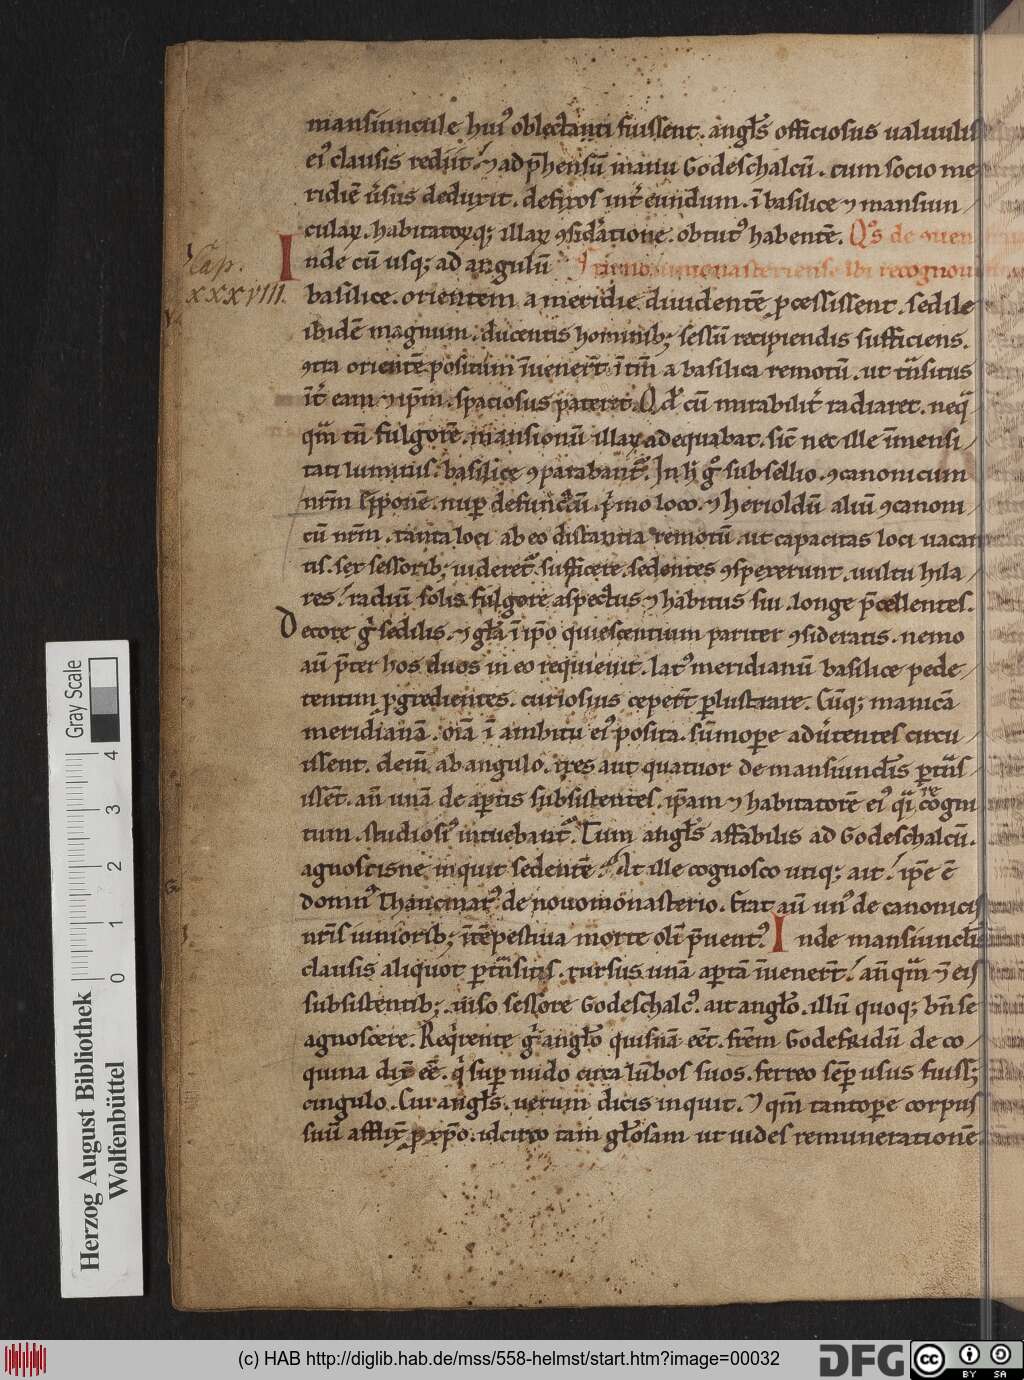 mansiuncule hui᾽ oblectanti fuissent. angl̄s officiosus ualuulis
ei᾽ clausis rediit. ⁊ ad p̄hensū manu Godeschalcū. cum socio me
ridiē ūsus deduxit. defixos int̄ eundum. ī basilice ⁊ mansiun
cularꝝ. habitatorꝝq; illarꝝ ꝯsid̄atione. obtut᾽ habentē. Q᾽s de ꝯuen
Cap.
xxxviii.
Inde cū usq; ad angulū monasteriense ibi recognou
basilice. orientem a meridie diuidentē ꝓcessissent. sedile
ibidē magnum. ducentis hominib; sessū recipiendis sufficiens.
ꝯtra orientē positum īuener̄t ī tm̄ a basilica remotū. ut t̄nsitus
īt̄ eam ⁊ ip̄m. spaciosus pateret. Qd̄ cū mirabilit̄ radiaret. neq̄
qm̄ tn̄ fulgorē. mansionū illarꝝ adequabat. sic̄ nec ille īmensi
tati luminis. basilice ꝯparabant᾽. In h̄ ḡ subsellio. ꝯcanonicum
nr̄m nup̄ defunctū. p̄mo loco. ⁊ herioldū aliū ꝯcanoni
cū nr̄m. tanta loci ab eo distantia remotū. ut capacitas loci uacan
tis. sex sessorib; uideret᾽ sufficere. sedentes ꝯspexerunt. uultu hila
res. radiū solis fulgore aspectus ⁊ habitus sui longe p̄cellentes.
Decore ḡ sedilis. ⁊ gl̄a ī ip̄o quiescentium pariter ꝯsideratis. nemo
aū p̄ter hos duos in eo requieuit. lat᾽ meridianū basilice pede
tentim ꝓgredientes. curiosius ceper̄t ꝑlustrare. Cūq; manicā
meridianā. oīa ī ambitu ei᾽ posita. sūmopere adūtentes circu
issent. dein̄ ab angulo. tres aut quatuor de mansiunclis ꝑt̄ns
issēt. an̄ unā de aꝑtis subsistentes. ip̄am ⁊ habitatorē ei᾽ q̄i recogni
tum. studiosi᾽ intuebant᾽. Tum angl̄s affabilis ad Godeschalcū.
agnoscisne inquit sedentē? At ille cognosco utiq; ait. ip̄e ē
domn᾽ Thancmar᾽ de nouomonasterio. Erat aū un᾽ de canonicis
nr̄is iuniorib; ītēpestiua morte olī p̄uent᾽. Inde mansiunclis
clausis aliquot ꝑt̄nsitis. rursus unā aꝑtā īuener̄t. an̄ qm̄ ⁊ eis
subsistentib;. uiso sessore Godeschalc᾽. ait angl̄o. illū quoq; bn̄ se
agnoscere. Req̄rente ḡ angl̄o quisnā eēt. fr̄em Godefridū de co
quina dix̄ eē. q̄ sup̄ nudo circa lūbos suos. ferreo sēp̄ usus fuiss;
cingulo. Cur angl̄s. uerum dicis inquit. ⁊ qm̄ tantoꝑe corpus
suū afflix̄ ꝓ xp̄o. idcirco tam gl̄osam ut uides remunerationē
Gray Scale
4
3
2
1
0
Herzog August Bibliothek
Wolfenbüttel
(c) HAB http://diglib.hab.de/mss/558-helmst/start.htm?image=00032
DFG
cc BY SA